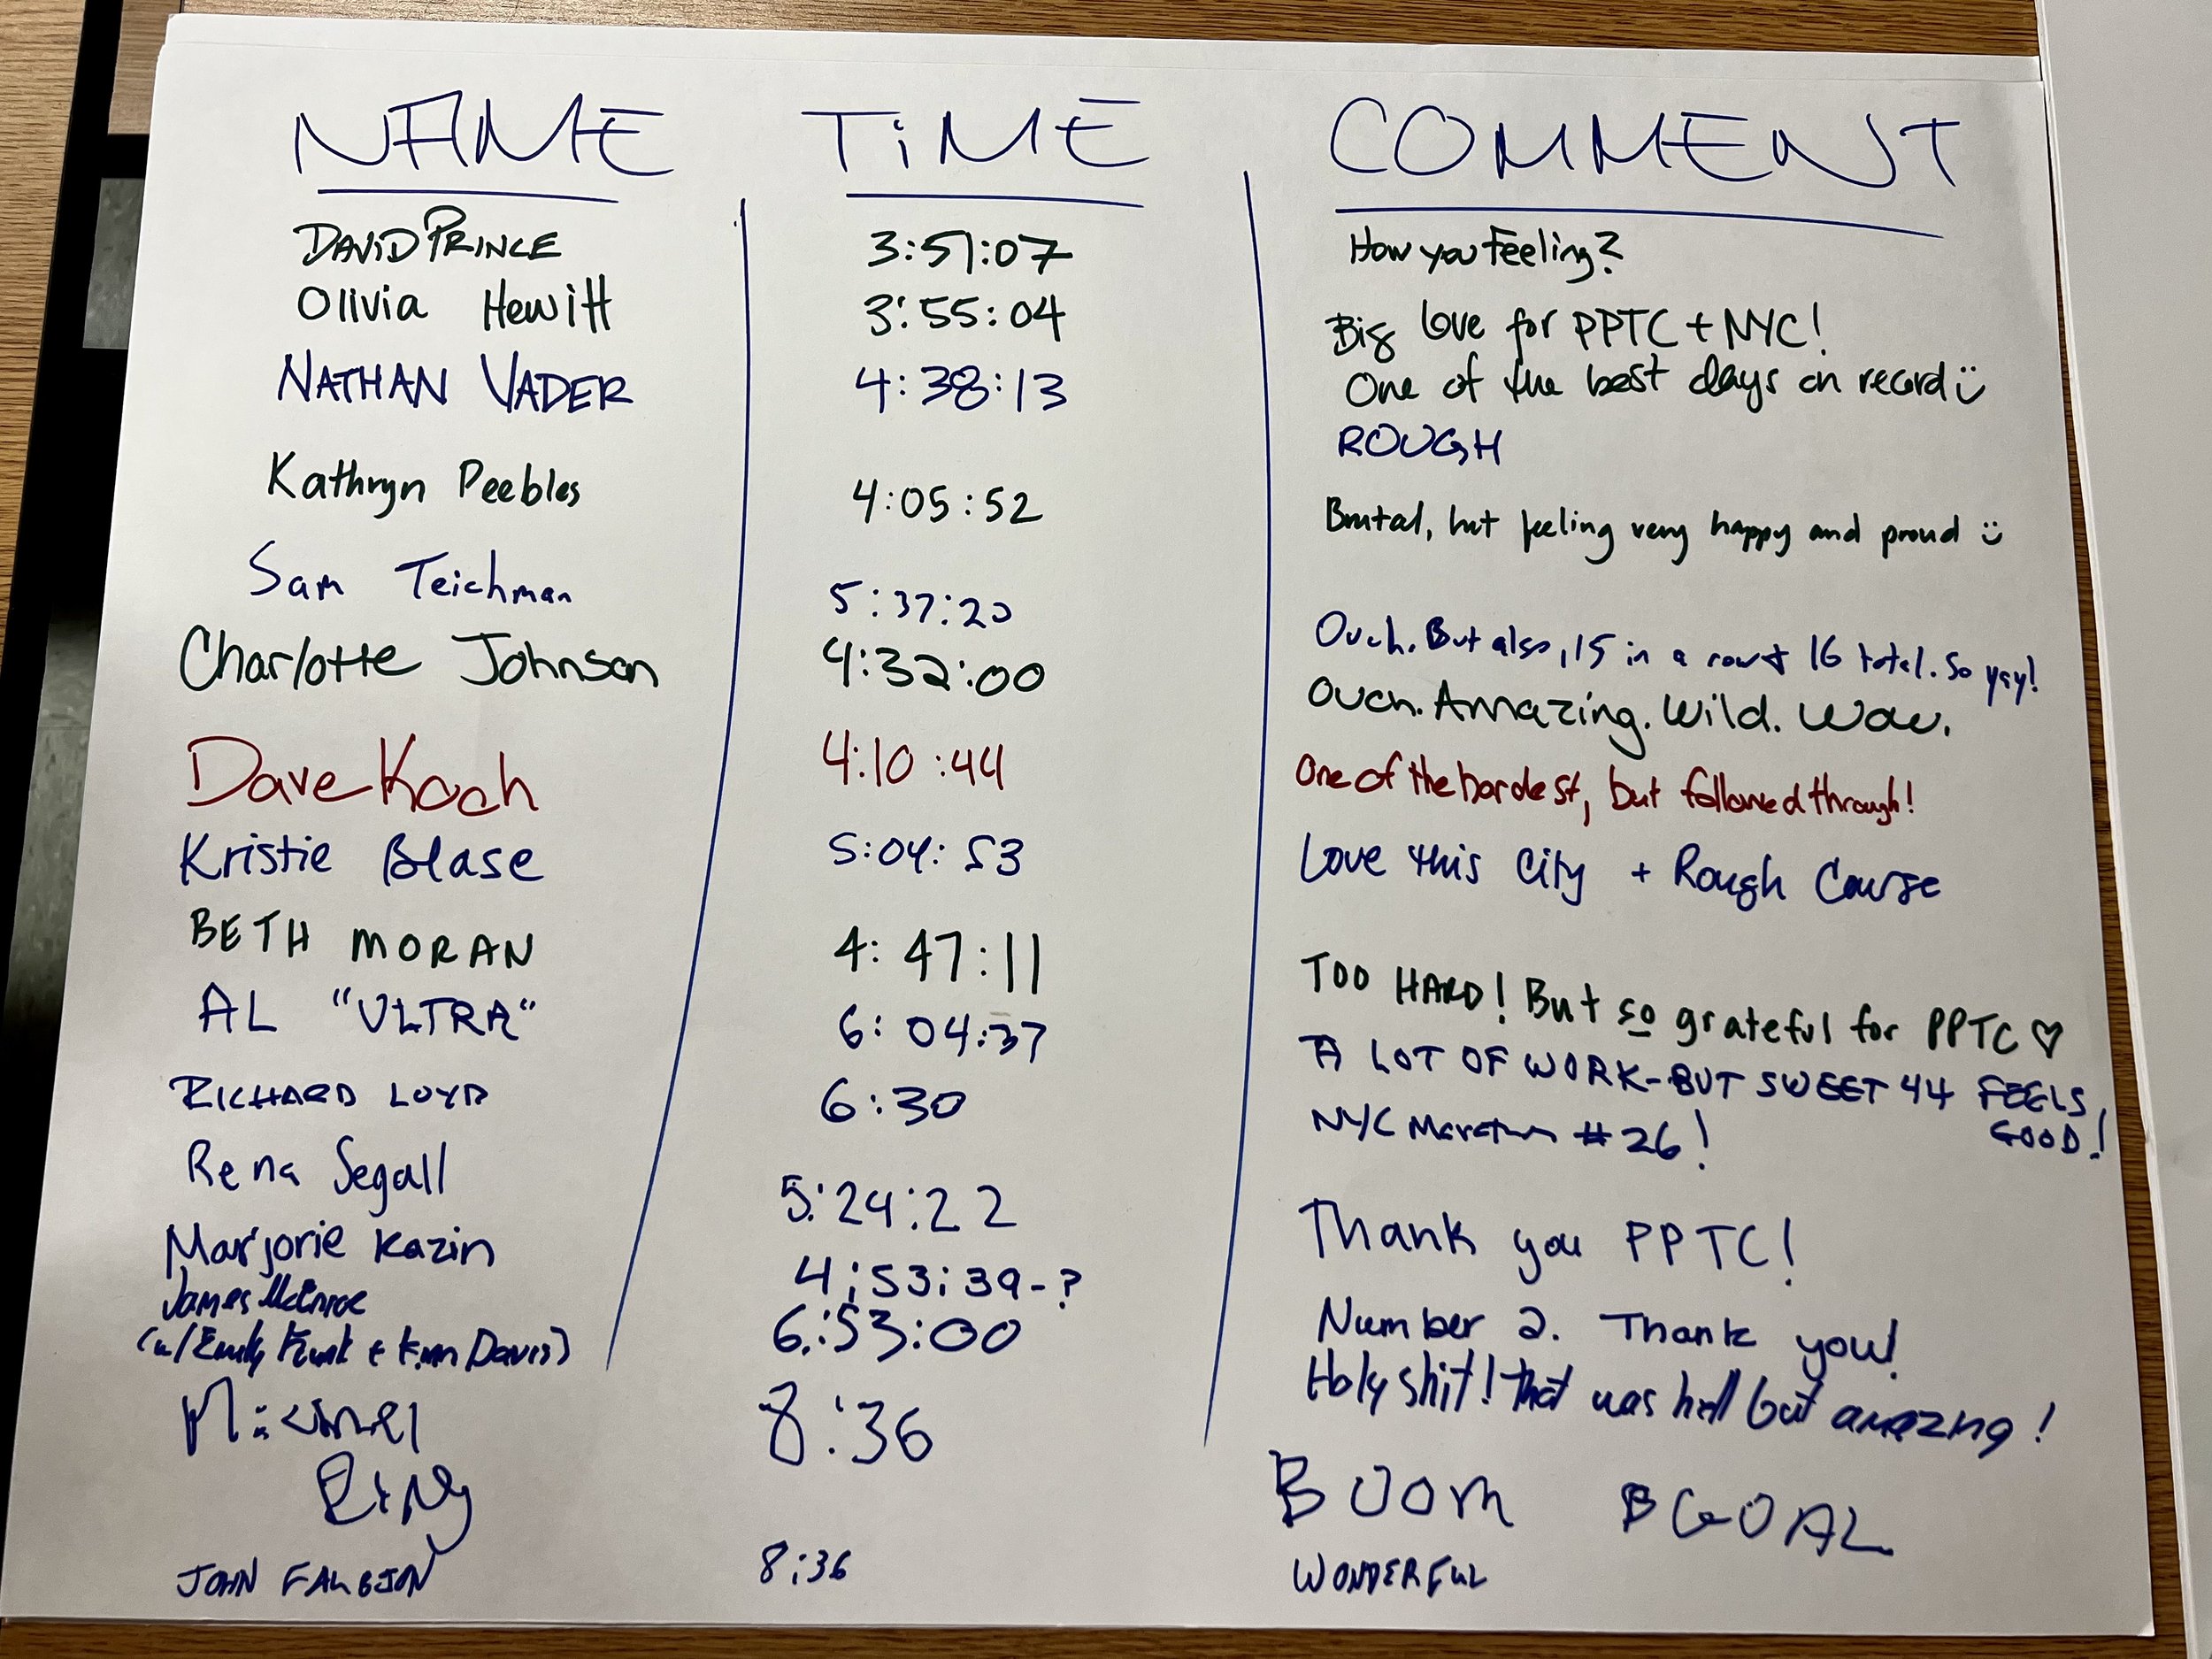 NAME TiME COMMENT
DAViD PRINCE 3:51:07 How you Feeling?
Olivia Hewitt 3:55:04 Big love for PPTC + NYC!
One of the best days on record
NATHAN VADER 4:38:13 ROUGH
Kathryn Peebles 4:05:52 Brutal, but feeling very happy and proud
Sam Teichman 5:37:20 Ouch. But also, 15 in a row + 16 total. So yay!
Charlotte Johnson 4:32:00 Ouch. Amazing. Wild. Wow.
Dave Koch 4:10:44 One of the hardest, but followed through!
Kristie Blase 5:04:53 Love this City + Rough Course
BETH MORAN 4:47:11 TOO HARD! But so grateful for PPTC ♡
AL "ULTRA" 6:04:37 A LOT OF WORK-BUT SWEET 44 FEELS
GOOD!
RICHARD LOYD 6:30 NYC Marathon #26!
Rena Segall 5:24:22 Thank you PPTC!
Marjorie Kazin 4:53:39-? Number 2. Thank you!
James McEnroe 6:53:00 Holy shit! That was hell but amazing!
(w/ Emily Funk + Kim Davis)
Michael 8:36 BOOM B GOAL
Ring
JOHN 8:36 WONDERFUL